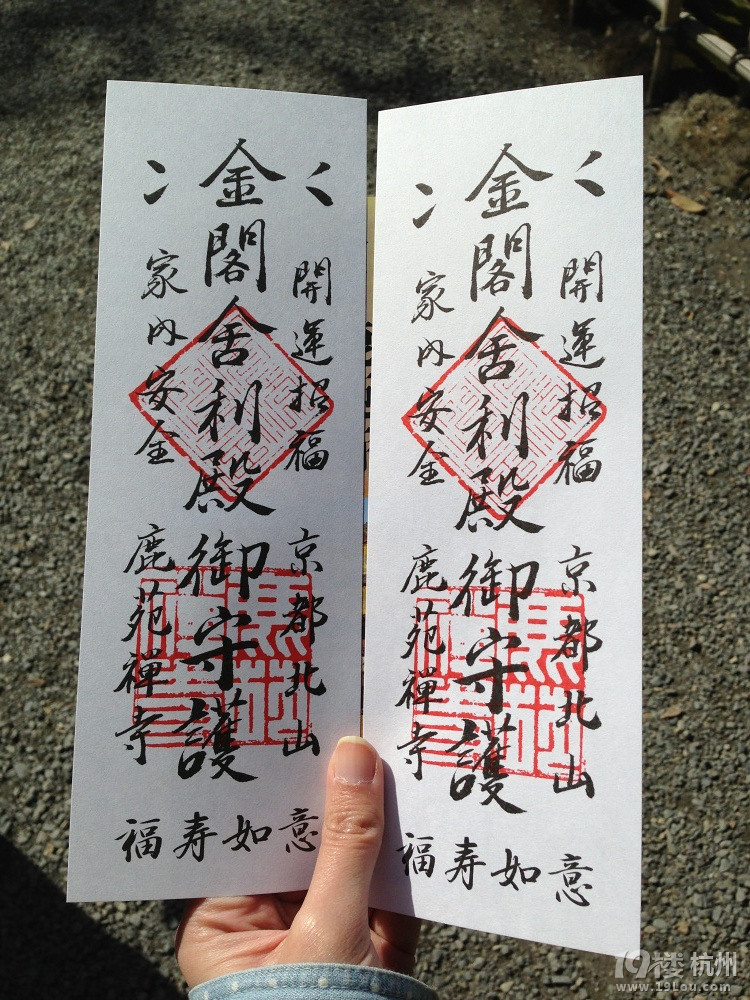 金閣舍利殿御守護
開運招福
京都北山
家内安全
鹿苑禅寺
如意
福寿
金閣舍利殿御守護
開運招福
京都北山
家内安全
鹿苑禅寺
如意
福寿
19楼 杭州
www.19lou.com